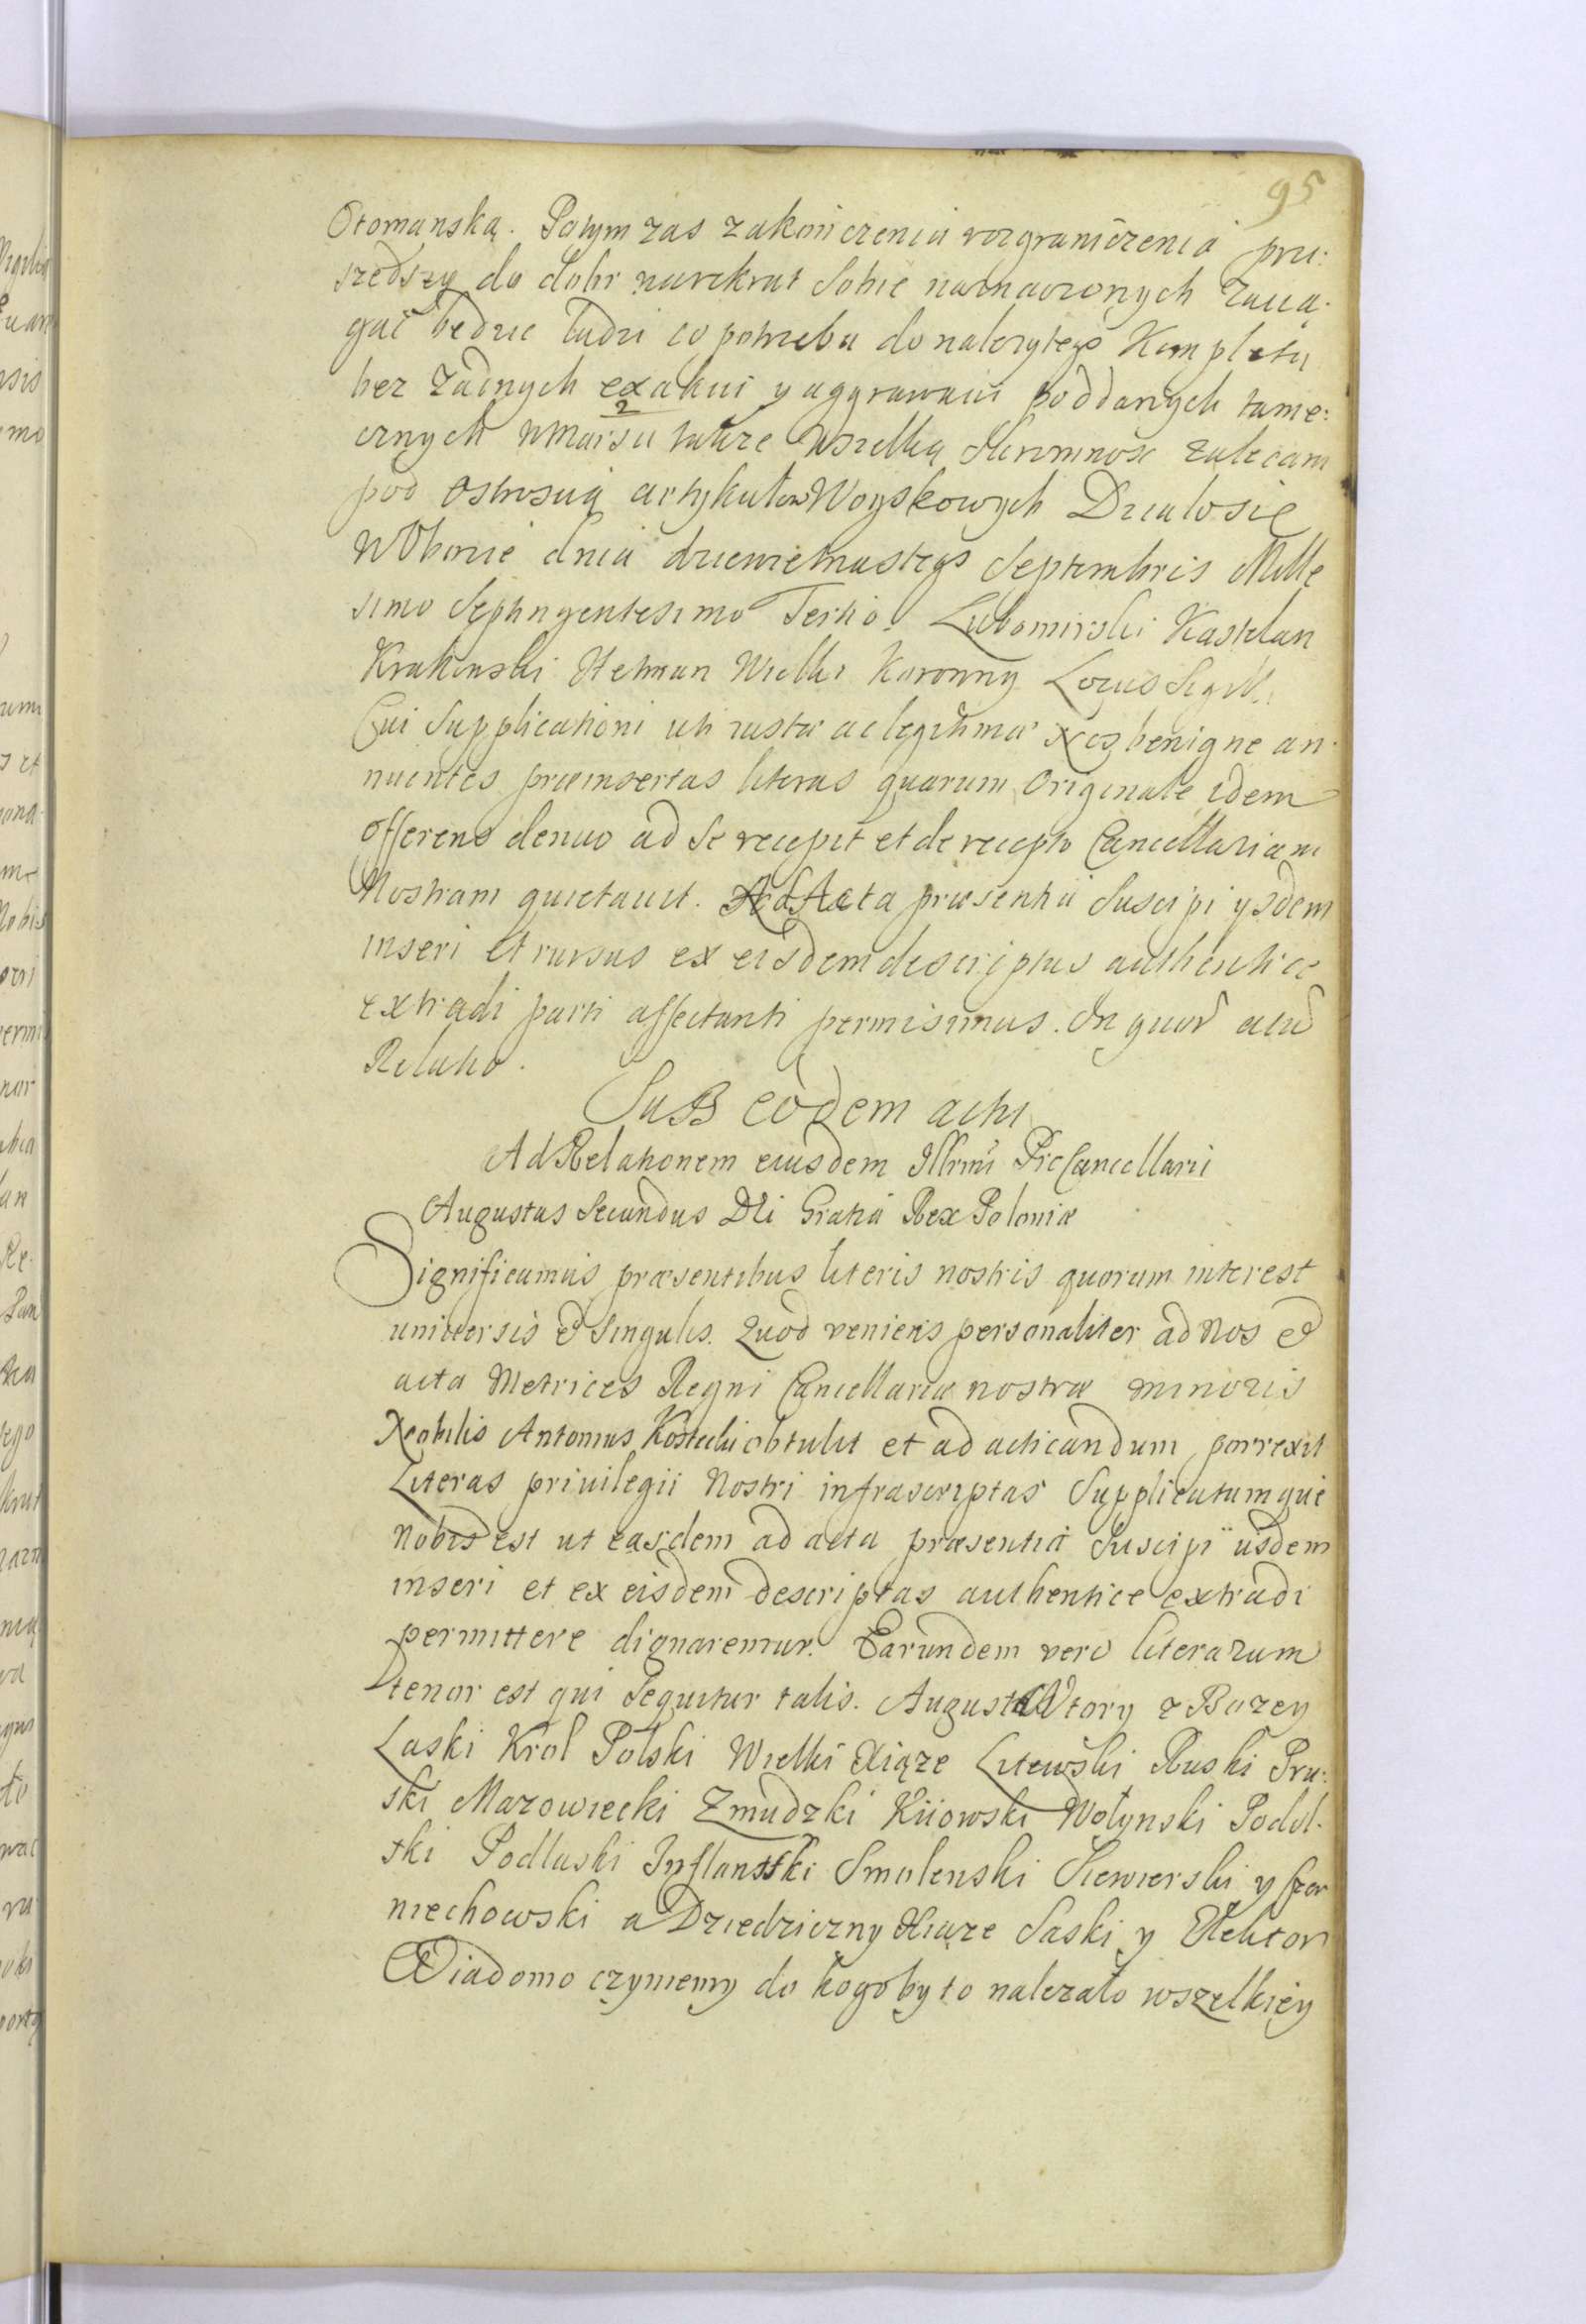 95
Otomanską. Potym zas zakonczeniu rozgraniczenia przy:
szedszy do dobr na rekrut sobie naznaczonych zacią.
gac bedzie ludzi co potrzeba do nalezytego Kompletu
bez zadnych exakcii y aggrawacii poddanych tame:
cznych w Marszu takze wszelką skromnosc zalecam
pod ostroscią artykułow Woyskowych Działosie
w Obozie dnia dziewietnastego Septembris Mille
simo Septingentesimo Tertio. Lubomirski Kasztelan
Krakowski Hetman Wielki Koronny Locus Sigilli.
Cui Supplicationi uti iustæ ac legitimæ Nos benigne an.
nuentes præinsertas literas quarum Originale idem
offerens denuo ad se recepit et de recepto Cancellariam
Nostram quietauit. Ad Acta præsentia Suscipi ysdem
inseri et rursus ex eisdem descriptas authentice
extradi parti affectanti permisimus. In quor
Relatio.
SuB eodem actu
Ad Relationem eiusdem Illrmi ProCancellarii
Augustus Secundus Dei Gratia Rex Poloniæ
Significamus præsentibus literis nostris quorum interest
universis & singulis. Quod veniens personaliter ad Nos &
acta Metrices Regni Cancellariæ nostræ minoris
Nobilis Antonius Kostecki obtulit et ad acticandum porrexit
Literas priuilegii Nostri infrascriptas Supplicatumque
Nobis est ut easdem ad acta præsentia Suscipi iisdem
inseri et ex eisdem descriptas authentice extradi
permittere dignaremur. Earundem vero literarum
tenor est qui sequitur talis. August Wtory z Bozey
Laski Krol Polski Wielki Xiąze Litewski Ruski Pru:
ski Mazowiecki Zmudzki Kiiowski Wołynski Podol.
ski Podlaski Inflantski Smolenski Siewierski y Czer
niechowski a Dziedziczny Xiąze Saski y Elektor
Wiadomo czyniemy do kogo by to nalezało wszelkiey